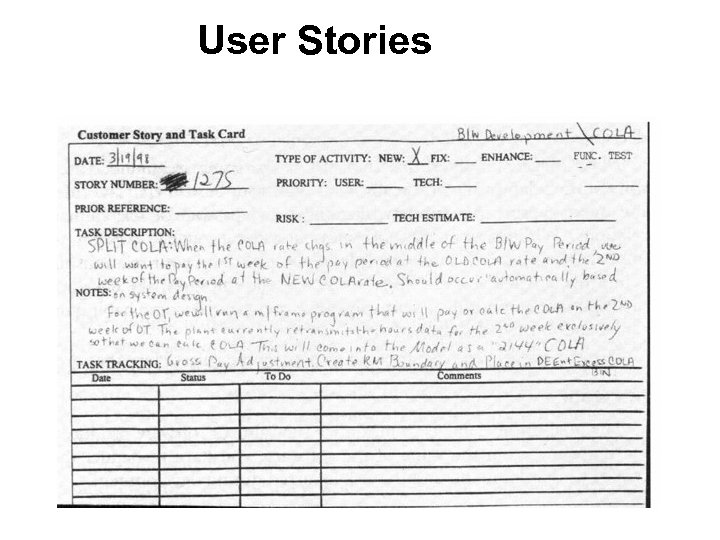 User Stories
Customer Story and Task Card B/W Development \ COLA
DATE: 3/19/98 TYPE OF ACTIVITY: NEW: X FIX: ENHANCE: FUNC. TEST
STORY NUMBER: 1275 PRIORITY: USER: TECH:
PRIOR REFERENCE:
RISK: TECH ESTIMATE:
TASK DESCRIPTION:
SPLIT COLA: When the COLA rate chgs. in the middle of the B/W Pay Period, we
will want to pay the 1ST week of the pay period at the OLD COLA rate and the 2ND
week of the Pay Period at the NEW COLA rate. Should occur automatically based
NOTES: on system design
For the OT, we will run a m/frame program that will pay or calc the COLA on the 2ND
week of OT. The plant currently retransmits the hours data for the 2nd week exclusively
so that we can calc COLA. This will come into the Model as a "2144" COLA
TASK TRACKING: Gross Pay Adjustment. Create RM Boundary and Place in DEEnt Excess COLA
BIN
Date Status To Do Comments